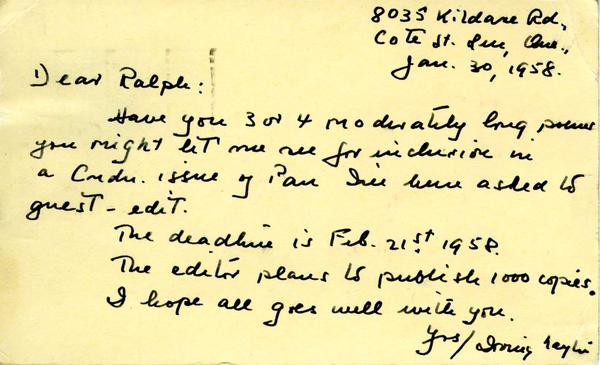 8035 Kildare Rd.,
Cote St. Luc, Que.,
Jan. 30, 1958.
Dear Ralph:
Have you 3 or 4 moderately long poems
you might let me see for inclusion in
a Cndn. issue of Pan I've been asked to
guest-edit.
The deadline is Feb. 21st 1958.
The editor plans to publish 1000 copies.
I hope all goes well with you.
Yrs/ Irving Layton